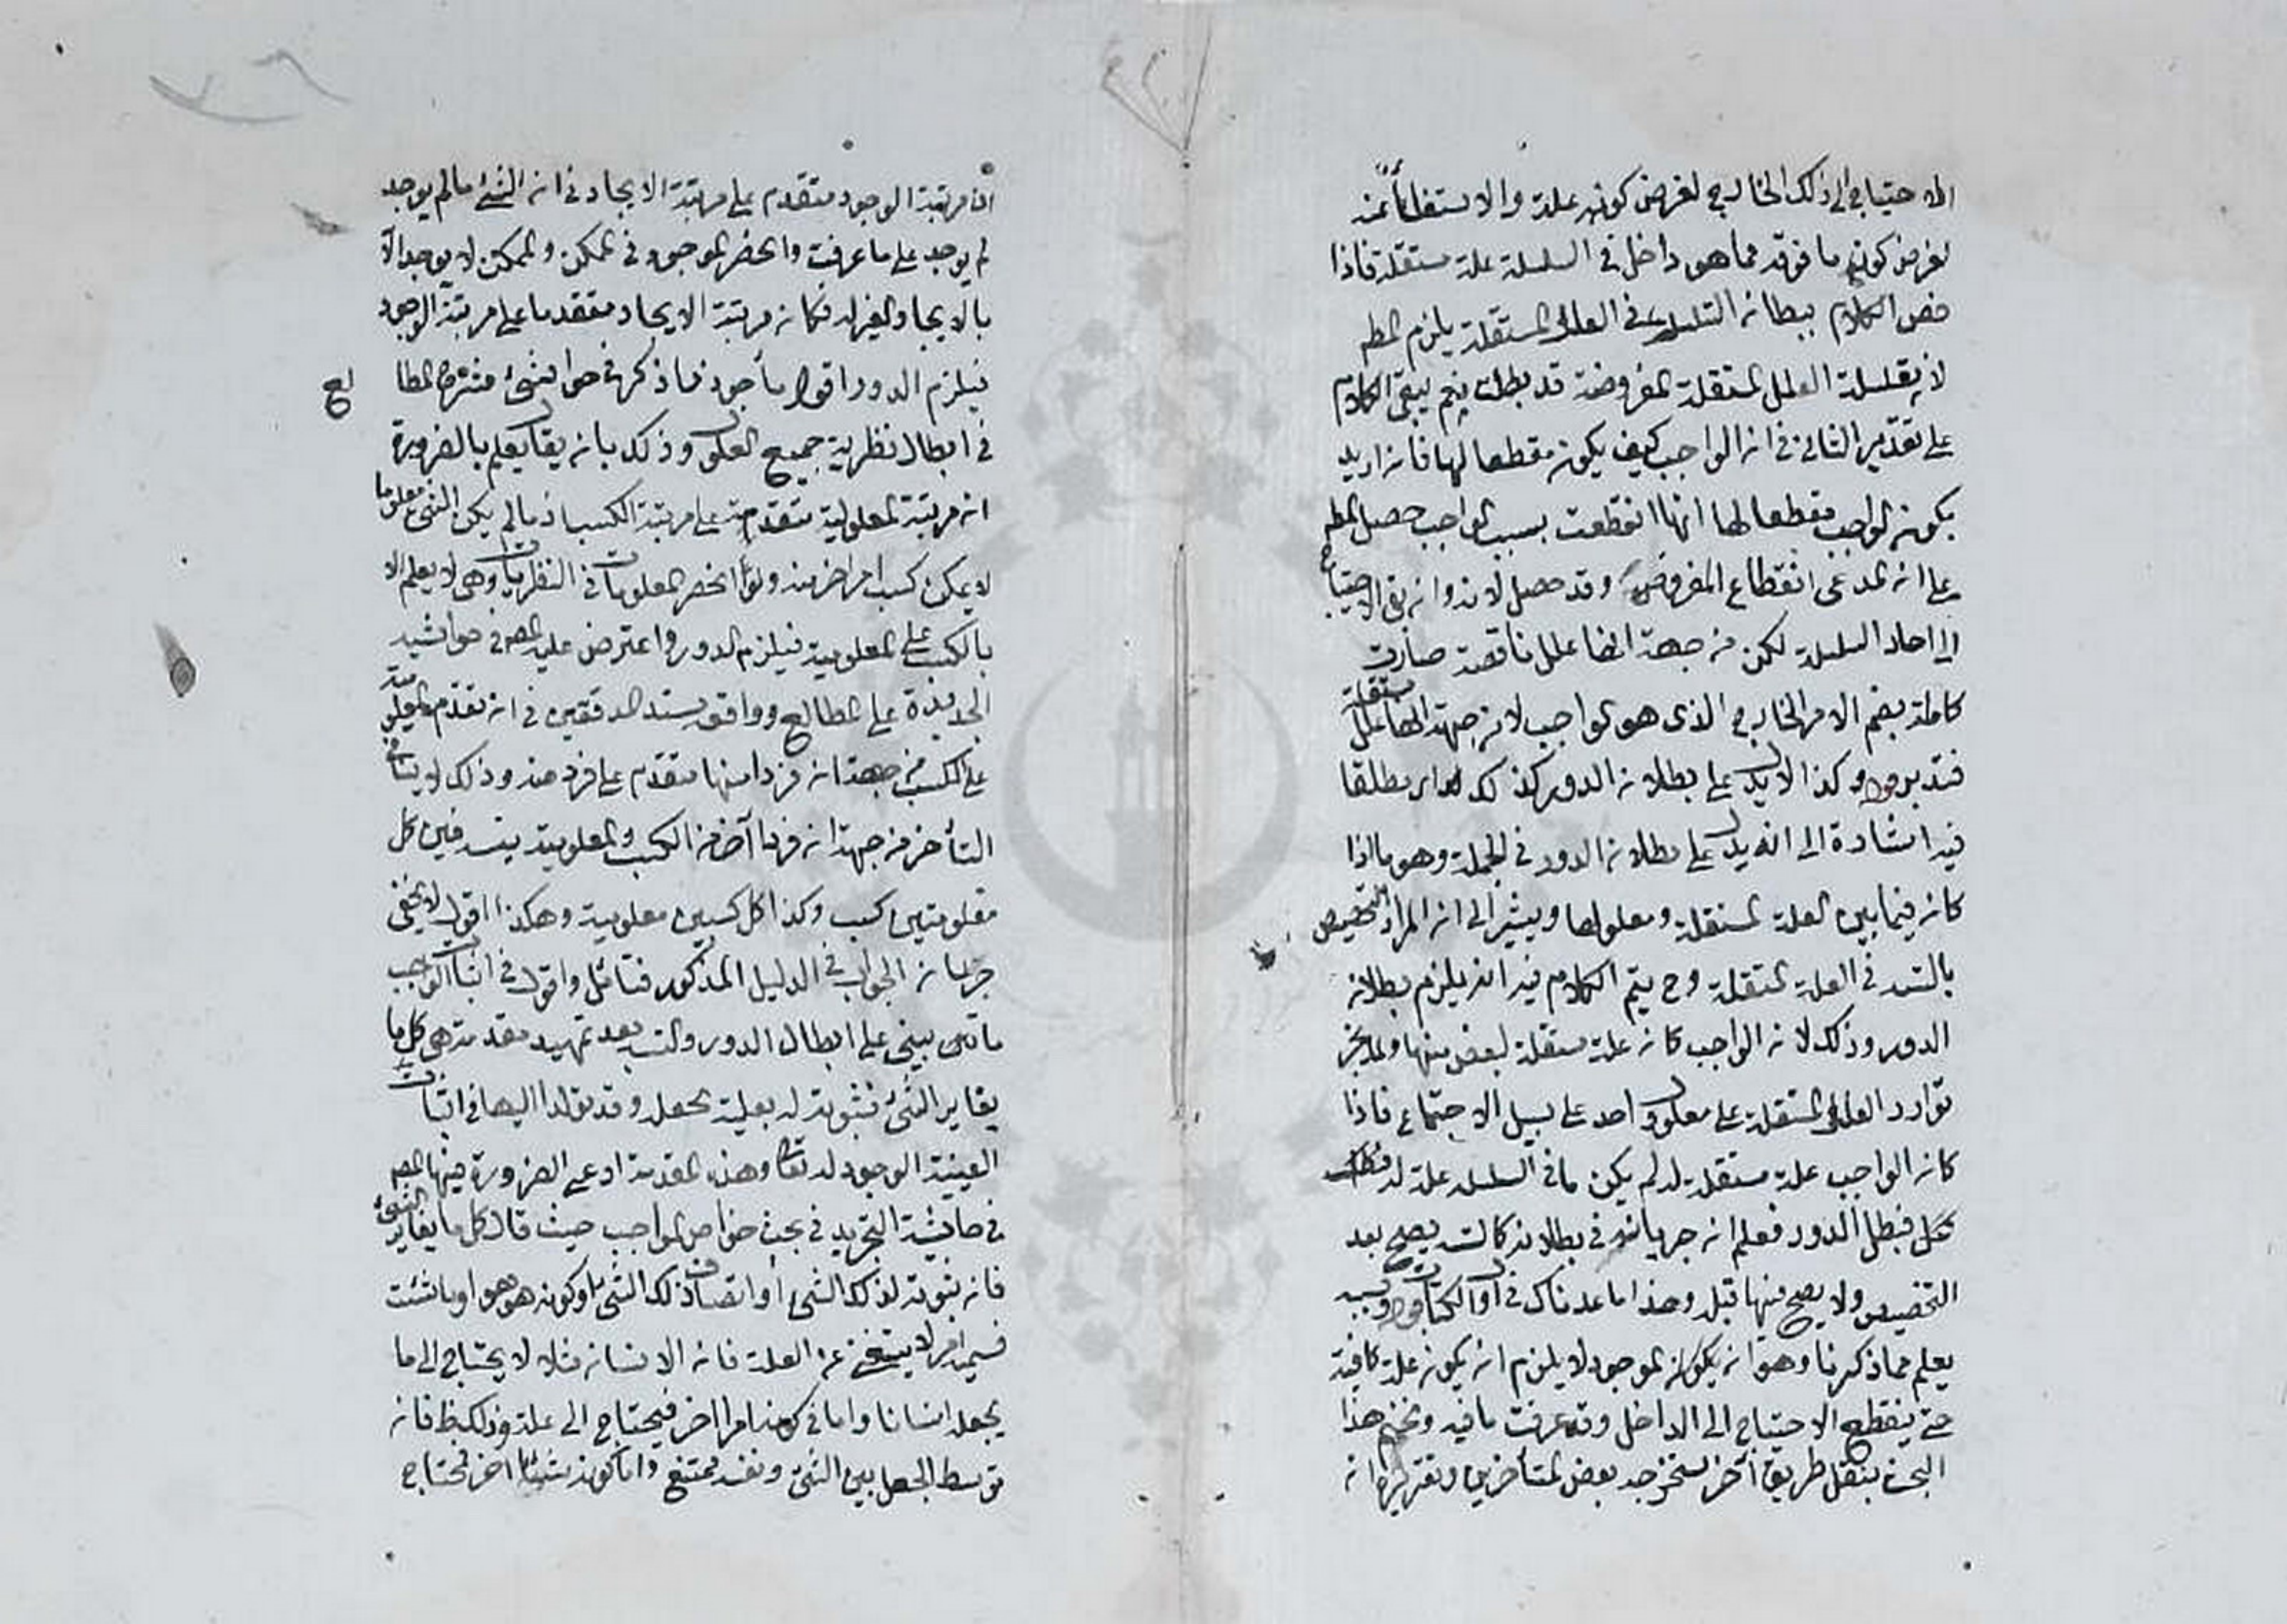 الاحتياج الى ذلك الخارج لفرض كونه علة والاستغناء عنه
لفرض كون ما فوقه مما هو داخل في السلسلة علة مستقلة فاذا
خص الكلام ببطلان التسلسل في العلل المستقلة يلزم المط
لان سلسلة العلل المستقلة المفروضة قد بطلت نعم يبقى الكلام
على تقدير الثاني في ان الواجب كيف يكون مقطعا لها فان اريد
بكون الواجب مقطعا لها انها انقطعت بسبب الواجب حصل المط
على ان المدعى انقطاع المفروضة وقد حصل لانه وان بقي الاحتياج
الى احاد السلسلة لكن من جهة انها علل ناقصة صارت
كاملة بضم الامر الخارج الذي هو الواجب لا من جهة انها علل مستقلة
فتدبر قوله وكذا لا يدل على بطلان الدور كذلك اي مطلقا
فيه اشارة الى انه يدل على بطلان الدور في الجملة وهو ما اذا
كان فيما بين العلة المستقلة ومعلولها ويشير الى ان المراد التخصيص
بالتس في العلة المستقلة وح يتم الكلام فيه انه يلزم بطلان
الدور وذلك لان الواجب كان علة مستقلة لبعض منها ولم يجز
توارد العلل المستقلة على معلول واحد على سبيل الاجتماع فاذا
كان الواجب علة مستقلة له لم يكن ما في السلسلة علة له
فبطل الدور فعلم ان جريانه في بطلانه كالتس يصح بعد
التخصيص ولا يصح فيها قبله وهذا ما عدناك في اول الكتاب قوله وبه
يعلم مما ذكرنا وهو ان يكون الموجود لا يلزم ان يكون علة كافية
حتى ينقطع الاحتياج الى الداخل وقد عرفت ما فيه ونختم هذا
البحث بنقل طريق آخر استخرجه بعض المتأخرين وتقريره ان
ان مرتبة الوجود متقدم على مرتبة الايجاد فان الشئ ما لم يوجد
لم يوجد على ما عرفت وانحصر الموجود في الممكن والممكن لا يوجد الا
بالايجاد لغيره فكان مرتبة الايجاد متقدما على مرتبة الوجود
فيلزم الدور اقول مأخوذ مما ذكره في حواشي شرح المطا
لع
في ابطال نظرية جميع العلوم وذلك بان يقال يعلم بالضرورة
ان مرتبة المعلومية متقدمة على مرتبة الكسب اذ ما لم يكن الشئ معلوما
لا يمكن كسب امر اخر منه ولو انحصر المعلومات في النظريات وهي لا يعلم الا
بالكسب على المعلومية فيلزم الدور واعترض عليه المص في حواشيه
الجديدة على المطالع ووافقه سند المدققين في ان تقدم المعلومية
على الكسب من جهة ان فردا منها متقدم على فرد منه وذلك لا ينافي
التأخر من جهة ان فردا آخر من الكسب والمعلومية يتس فبين كل
معلومتين كسب وكذا كل كسبين معلومية وهكذا اقول لا يخفى
جريان الجواب في الدليل المذكور فتأمل واقول في اثبات الواجب
ما يبتني على ابطال الدور والتس بعد تمهيد مقدمة هي كل ما
يغاير الشئ فثبوته له بعلية تجعله وقد تولد اليها في اثبات
العينية الوجود له تعالى وهذه المقدمة ادعى الضرورة فيها المص
في حاشية التجريد في بحث خواص الواجب حيث قال كل ما يغاير الشئ
فان ثبوته لذلك الشئ او اتصاف ذلك الشئ به او كونه هو هو او ما شئت
فسمه امر لا يستغني عن العلة فان الانسان مثلا لا يحتاج الى ما
يجعله انسانا واما في كونه امرا اخر فيحتاج الى علة وذلك فان
توسط الجعل بين الشئ ونفسه ممتنع واما كونه شيئا اخر فمحتاج